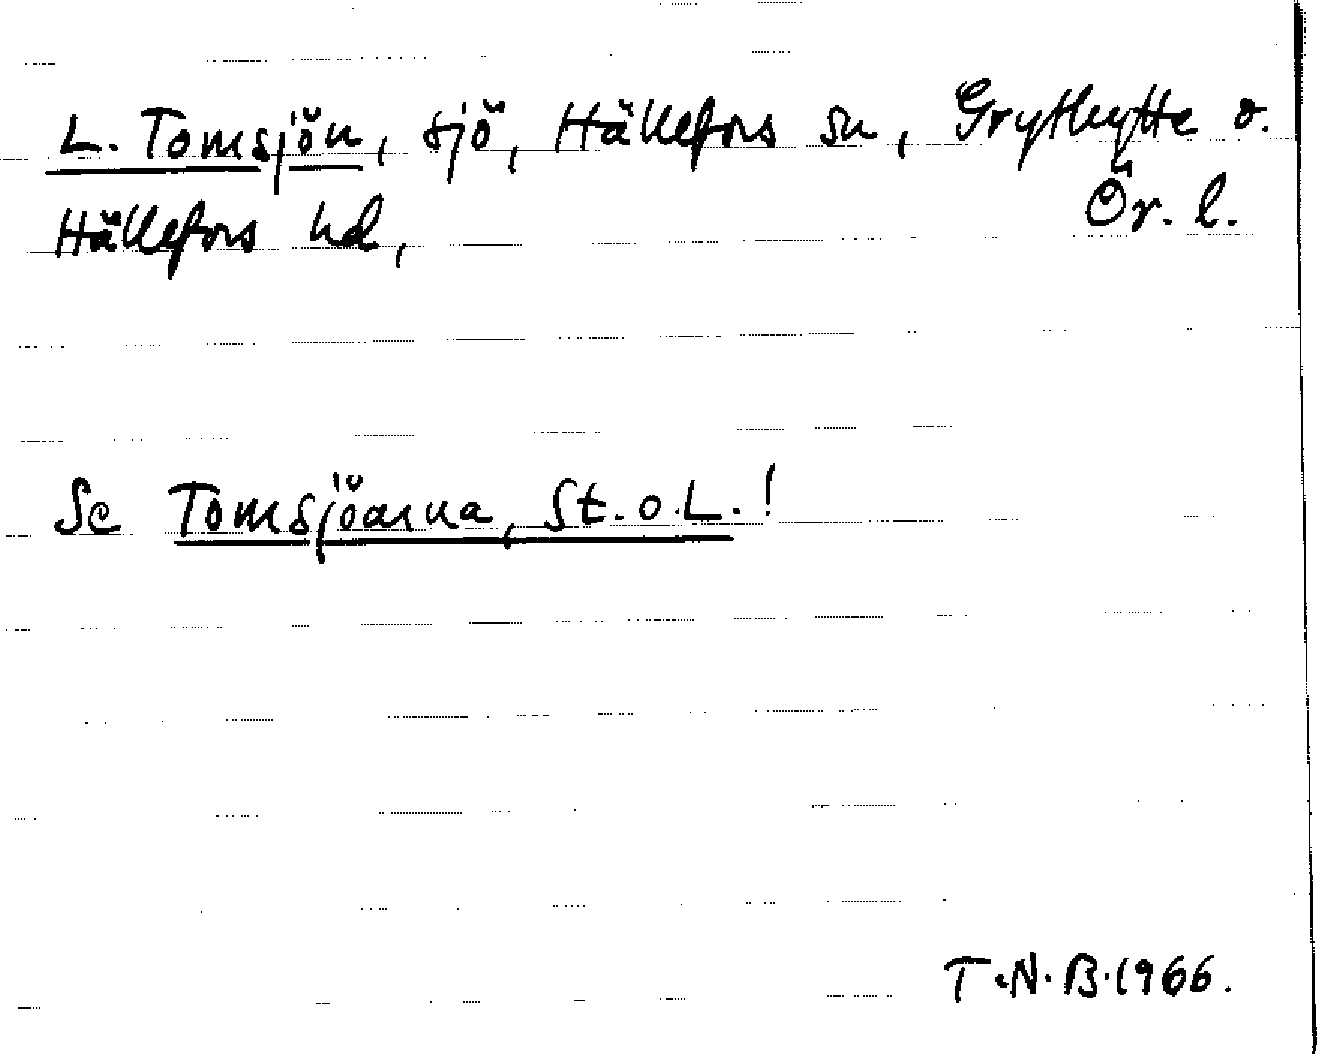 L. Tomsjön, sjö, Hällefors sn, Grythytte o.
Hällefors hd, Ör. l.
Se Tomsjöarna, St. o. L.!
T.N.B. 1966.